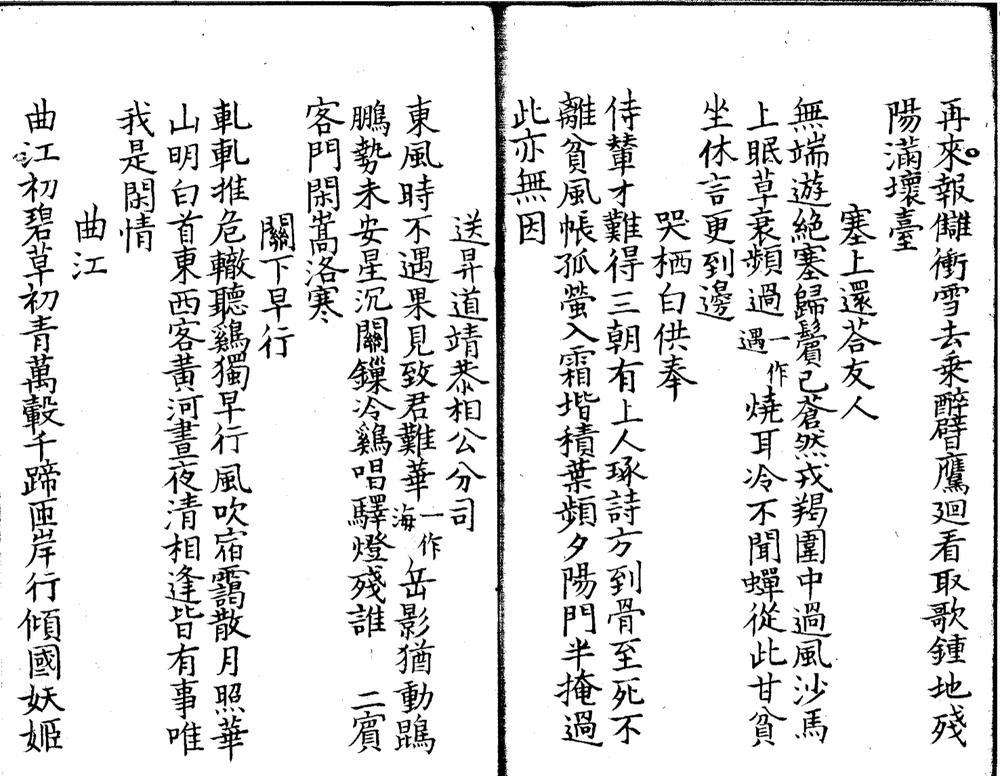 再來報讎衝雪去乗醉臂鷹廻看取歌鍾地殘
陽滿壞臺
塞上還荅友人
無端遊絶塞歸鬢已蒼然戎羯圍中過風沙馬
上眠草衰頻過一作遇燒耳冷不聞蟬從此甘貧
坐休言更到邊
哭栖白供奉
侍輦才難得三朝有上人琢詩方到骨至死不
離貧風帳孤螢入霜堦積葉頻夕陽門半掩過
此亦無因
送昇道靖恭相公分司
東風時不遇果見致君難華一作海岳影猶動鵾
鵬勢未安星沉關鏁冷鷄唱驛燈殘誰 二賔
客門閑嵩洛寒
關下早行
軋軋推危轍聽鷄獨早行風吹宿靄散月照華
山明白首東西客黃河晝夜清相逢皆有事唯
我是閑情
曲江
曲江初碧草初青萬轂千蹄匝岸行傾國妖姬